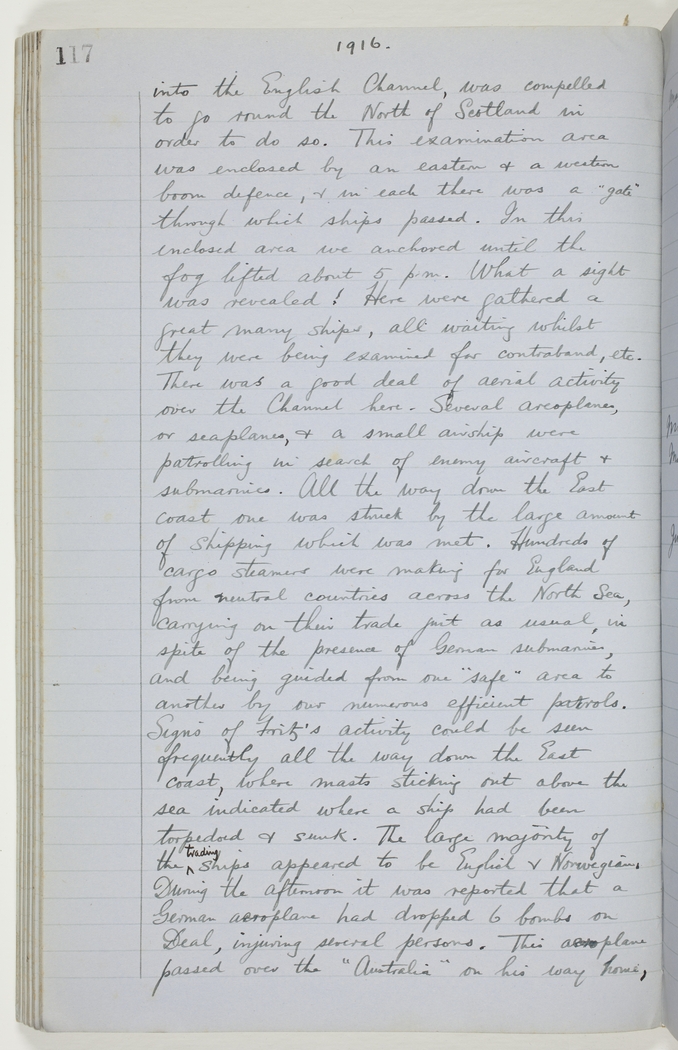 117
1916.
into the English Channel, was compelled
to go round the North of Scotland in
order to do so. This examination area
was enclosed by an eastern & a western
boom defence, & in each there was a "gate"
through which ships passed. In this
enclosed area we anchored until the
fog lifted about 5 p.m. What a sight
was revealed! Here were gathered a
great many ships, all waiting whilst
they were being examined for contraband, etc.
There was a good deal of aerial activity
over the Channel here. Several aeroplanes,
or seaplanes, & a small airship were
patrolling in search of enemy aircraft &
submarines. All the way down the East
coast one was struck by the large amount
of shipping which was met. Hundreds of
cargo steamers were making for England
from neutral countries across the North Sea,
carrying on their trade just as usual, in
spite of the presence of German submarines,
and being guided from one "safe" area to
another by our numerous efficient patrols.
Signs of Fritz's activity could be seen
frequently all the way down the East
coast, where masts sticking out above the
sea indicated where a ship had been
torpedoed & sunk. The large majority of
the trading ships appeared to be English & Norwegian.
During the afternoon it was reported that a
German aeroplane had dropped 6 bombs on
Deal, injuring several persons. This aeroplane
passed over the "Australia" on his way home,